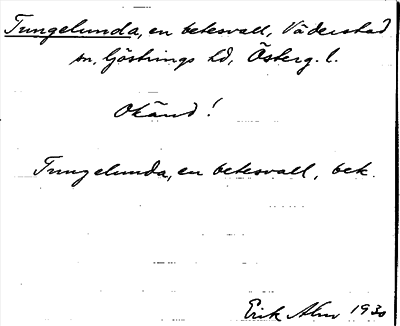 Tungelunda, en betesvall, Väderstad
sn, Göstrings hd, Österg. l.
Okänd!
Tungelunda, en betesvall, bek.
Erik Alm 1930